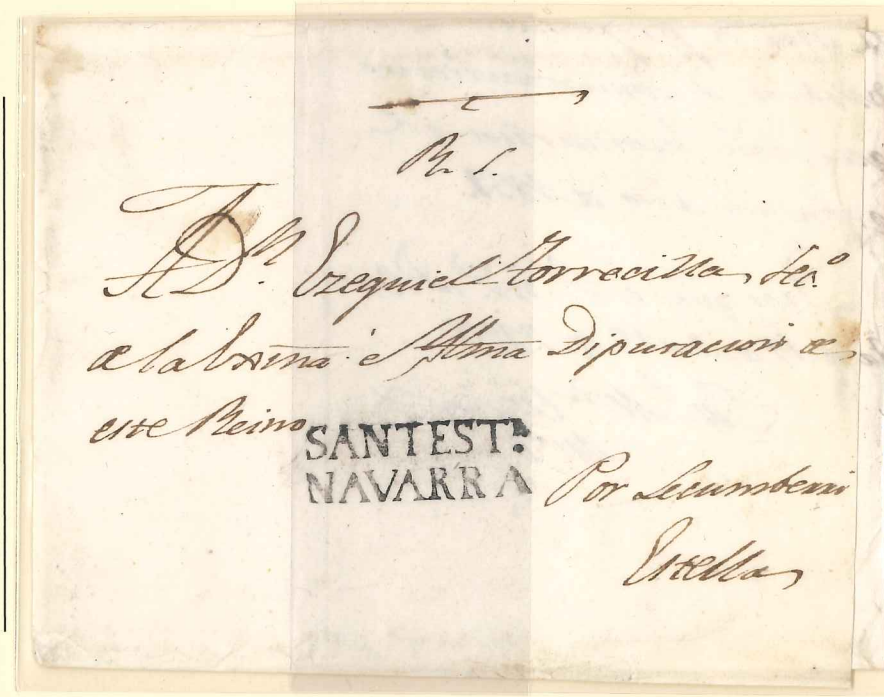 R. S.
A Dn. Ezequiel Torrecilla, Seco.
de la Exma. é Yllma Diputacion de
este Reino
SANTESTs.
NAVARRA
Por Lecumberri
Estella